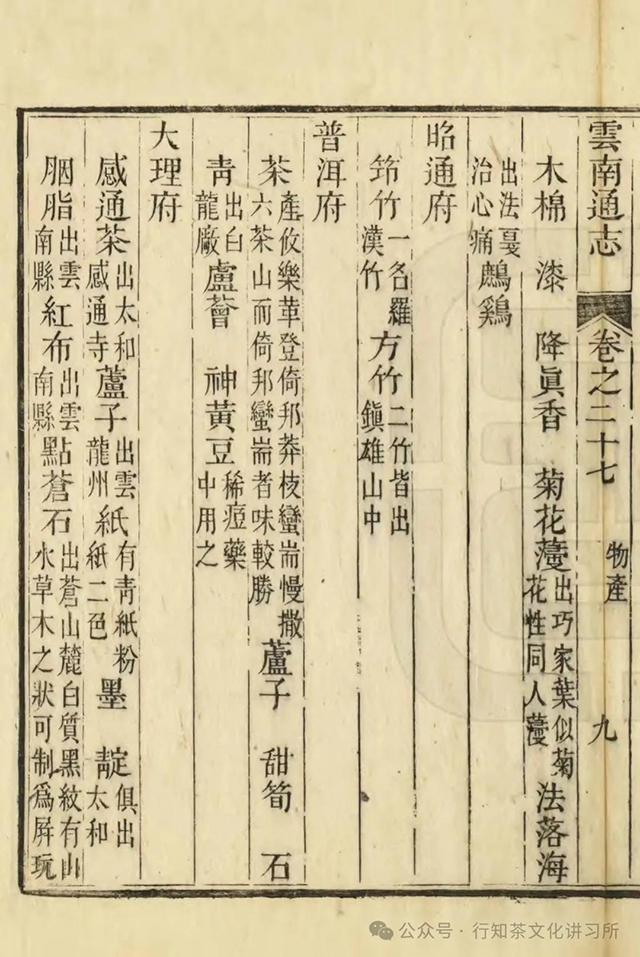 雲南通志 卷之二十七 物產 九
木棉 漆 降眞香 菊花薓 出巧家葉似菊花性同人薓 法落海
出法戛治心痛 鷄
昭通府
筇竹 一名羅漢竹 方竹 二竹皆出鎮雄山中
普洱府
茶 產攸樂革登倚邦莽枝蠻耑慢撒六茶山而倚邦蠻耑者味較勝 蘆子 甜筍 石
青 出白龍廠 蘆薈 神黃豆 稀痘藥中用之
大理府
感通茶 出太和感通寺 蘆子 出雲龍州 紙 有青紙粉紙二色 墨 靛 俱出太和
胭脂 出雲南縣 紅布 出雲南縣 點蒼石 出蒼山麓白質黑紋有山水草木之狀可制爲屏玩
公众号·行知茶文化讲习所